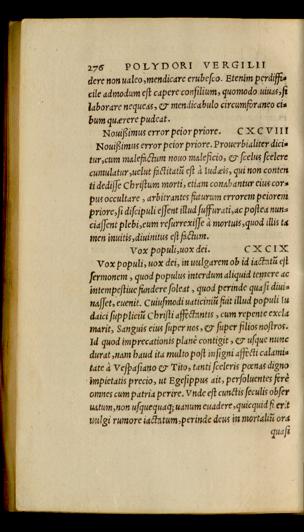 276 POLYDORI VERGILII
dere non ualeo, mendicare erubesco. Etenim perdiffi-
cile admodum est capere consilium, quomodo uiuas, si
laborare nequeas, & mendicabulo circumforaneo ci-
bum quærere pudeat.
Nouißimus error peior priore. CXCVIII
Nouißimus error peior priore. Prouerbialiter dici-
tur, cum malefactum nouo maleficio, & scelus scelere
cumulatur, uelut factitatū est à Iudæis, qui non conten
ti dedisse Christum morti, etiam conabantur eius cor-
pus occultare, arbitrantes futurum errorem peiorem
priore, si discipuli essent illud suffurati, ac postea nun-
ciassent plebi, eum resurrexisse à mortuis, quod illis ta
men inuitis, diuinitus est factum.
Vox populi, uox dei. CXCIX
Vox populi, uox dei, in uulgarem ob id iactatū est
sermonem, quod populus interdum aliquid temere ac
intempestiue fundere soleat, quod perinde quasi diui-
nasset, euenit. Cuiusmodi uaticiniū fuit illud populi Iu
daici suppliciū Christi affectantis, cum repente excla
marit, Sanguis eius super nos, & super filios nostros.
Id quod imprecationis planè contigit, & usque nunc
durat, nam haud ita multo pòst insigni affecti calami-
tate à Vespasiano & Tito, tanti sceleris pœnas digno
impietatis precio, ut Egesippus ait, persoluentes ferè
omnes cum patria perire. Vnde est cunctis seculis obser
uatum, non usquequaq; uanum euadere, quicquid fi erit
uulgi rumore iactatum, perinde deus in mortaliū ora
quasi